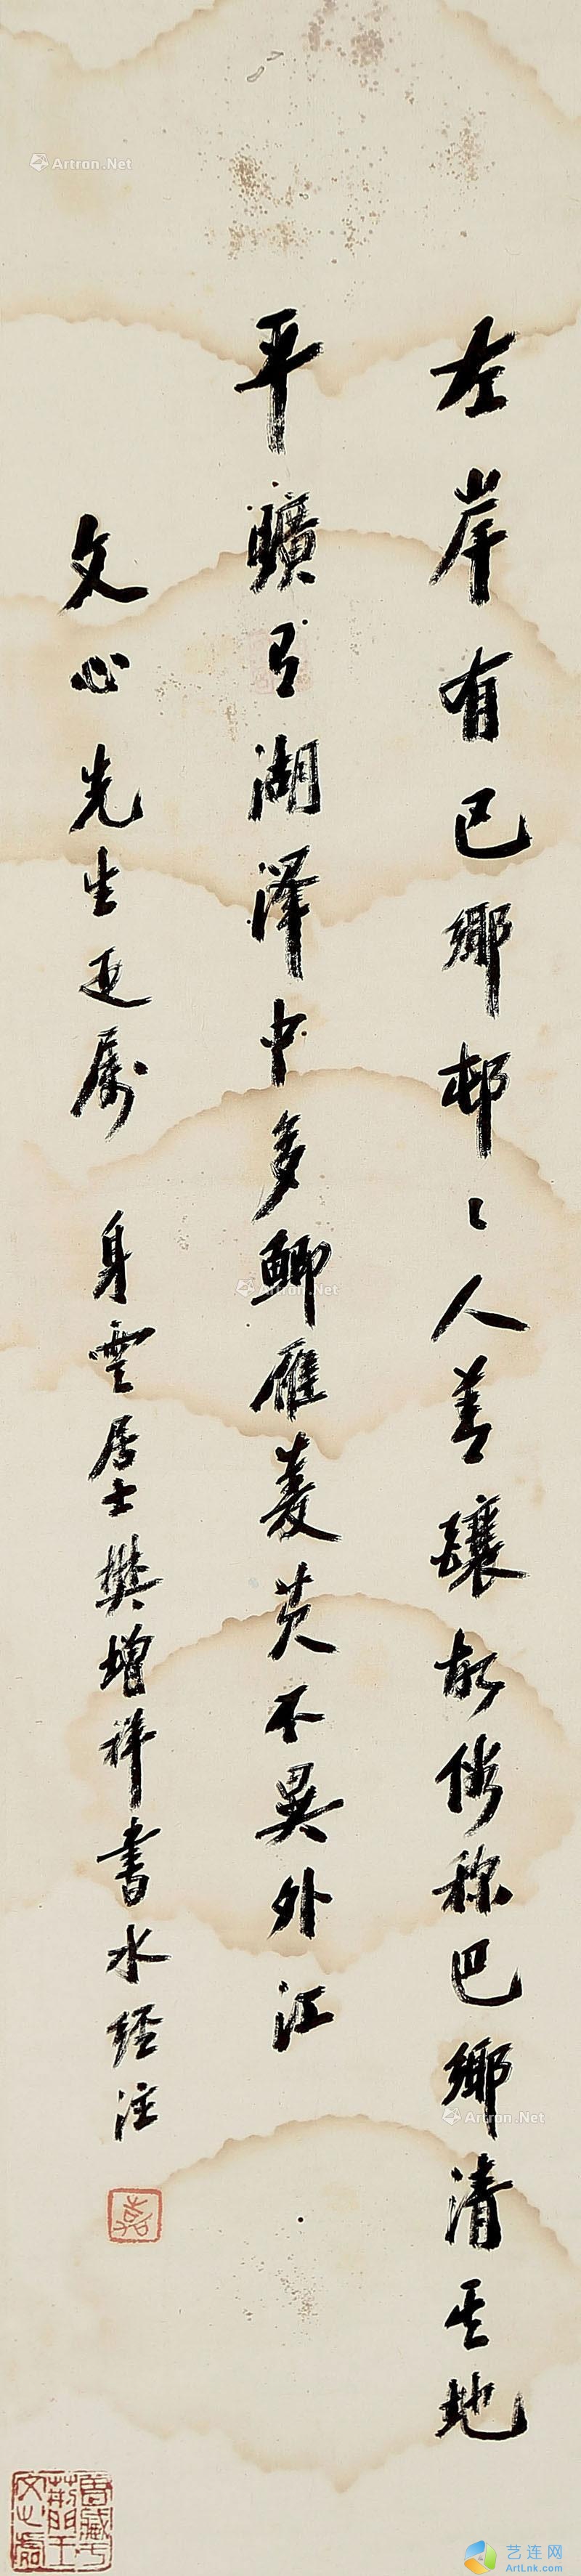 左岸有巴鄉邨〻人善釀故俗称巴鄉清其地
平曠有湖澤中多鯽雁菱芡不異外江
文心先生正属 身雲居士樊增祥書水經注
嘉
曾藏于荊門王文心處
Artron.Net
Artron.Net
Artron.Net
艺连网
ArtLnk.com